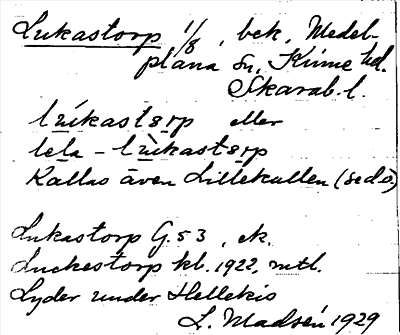 Lukastorp 1/8, bek, Medel-
plana Sn, Kinne hd.
Skarab. l.
lúkastɜrp eller
lela - lùkastɜrp
Kallas även Lillekullen (se d.o.)
Lukastorp G. 53, ek.
Luckestorp kl. 1922, mtl.
Lyder under Hellekis
L. Madsén 1929